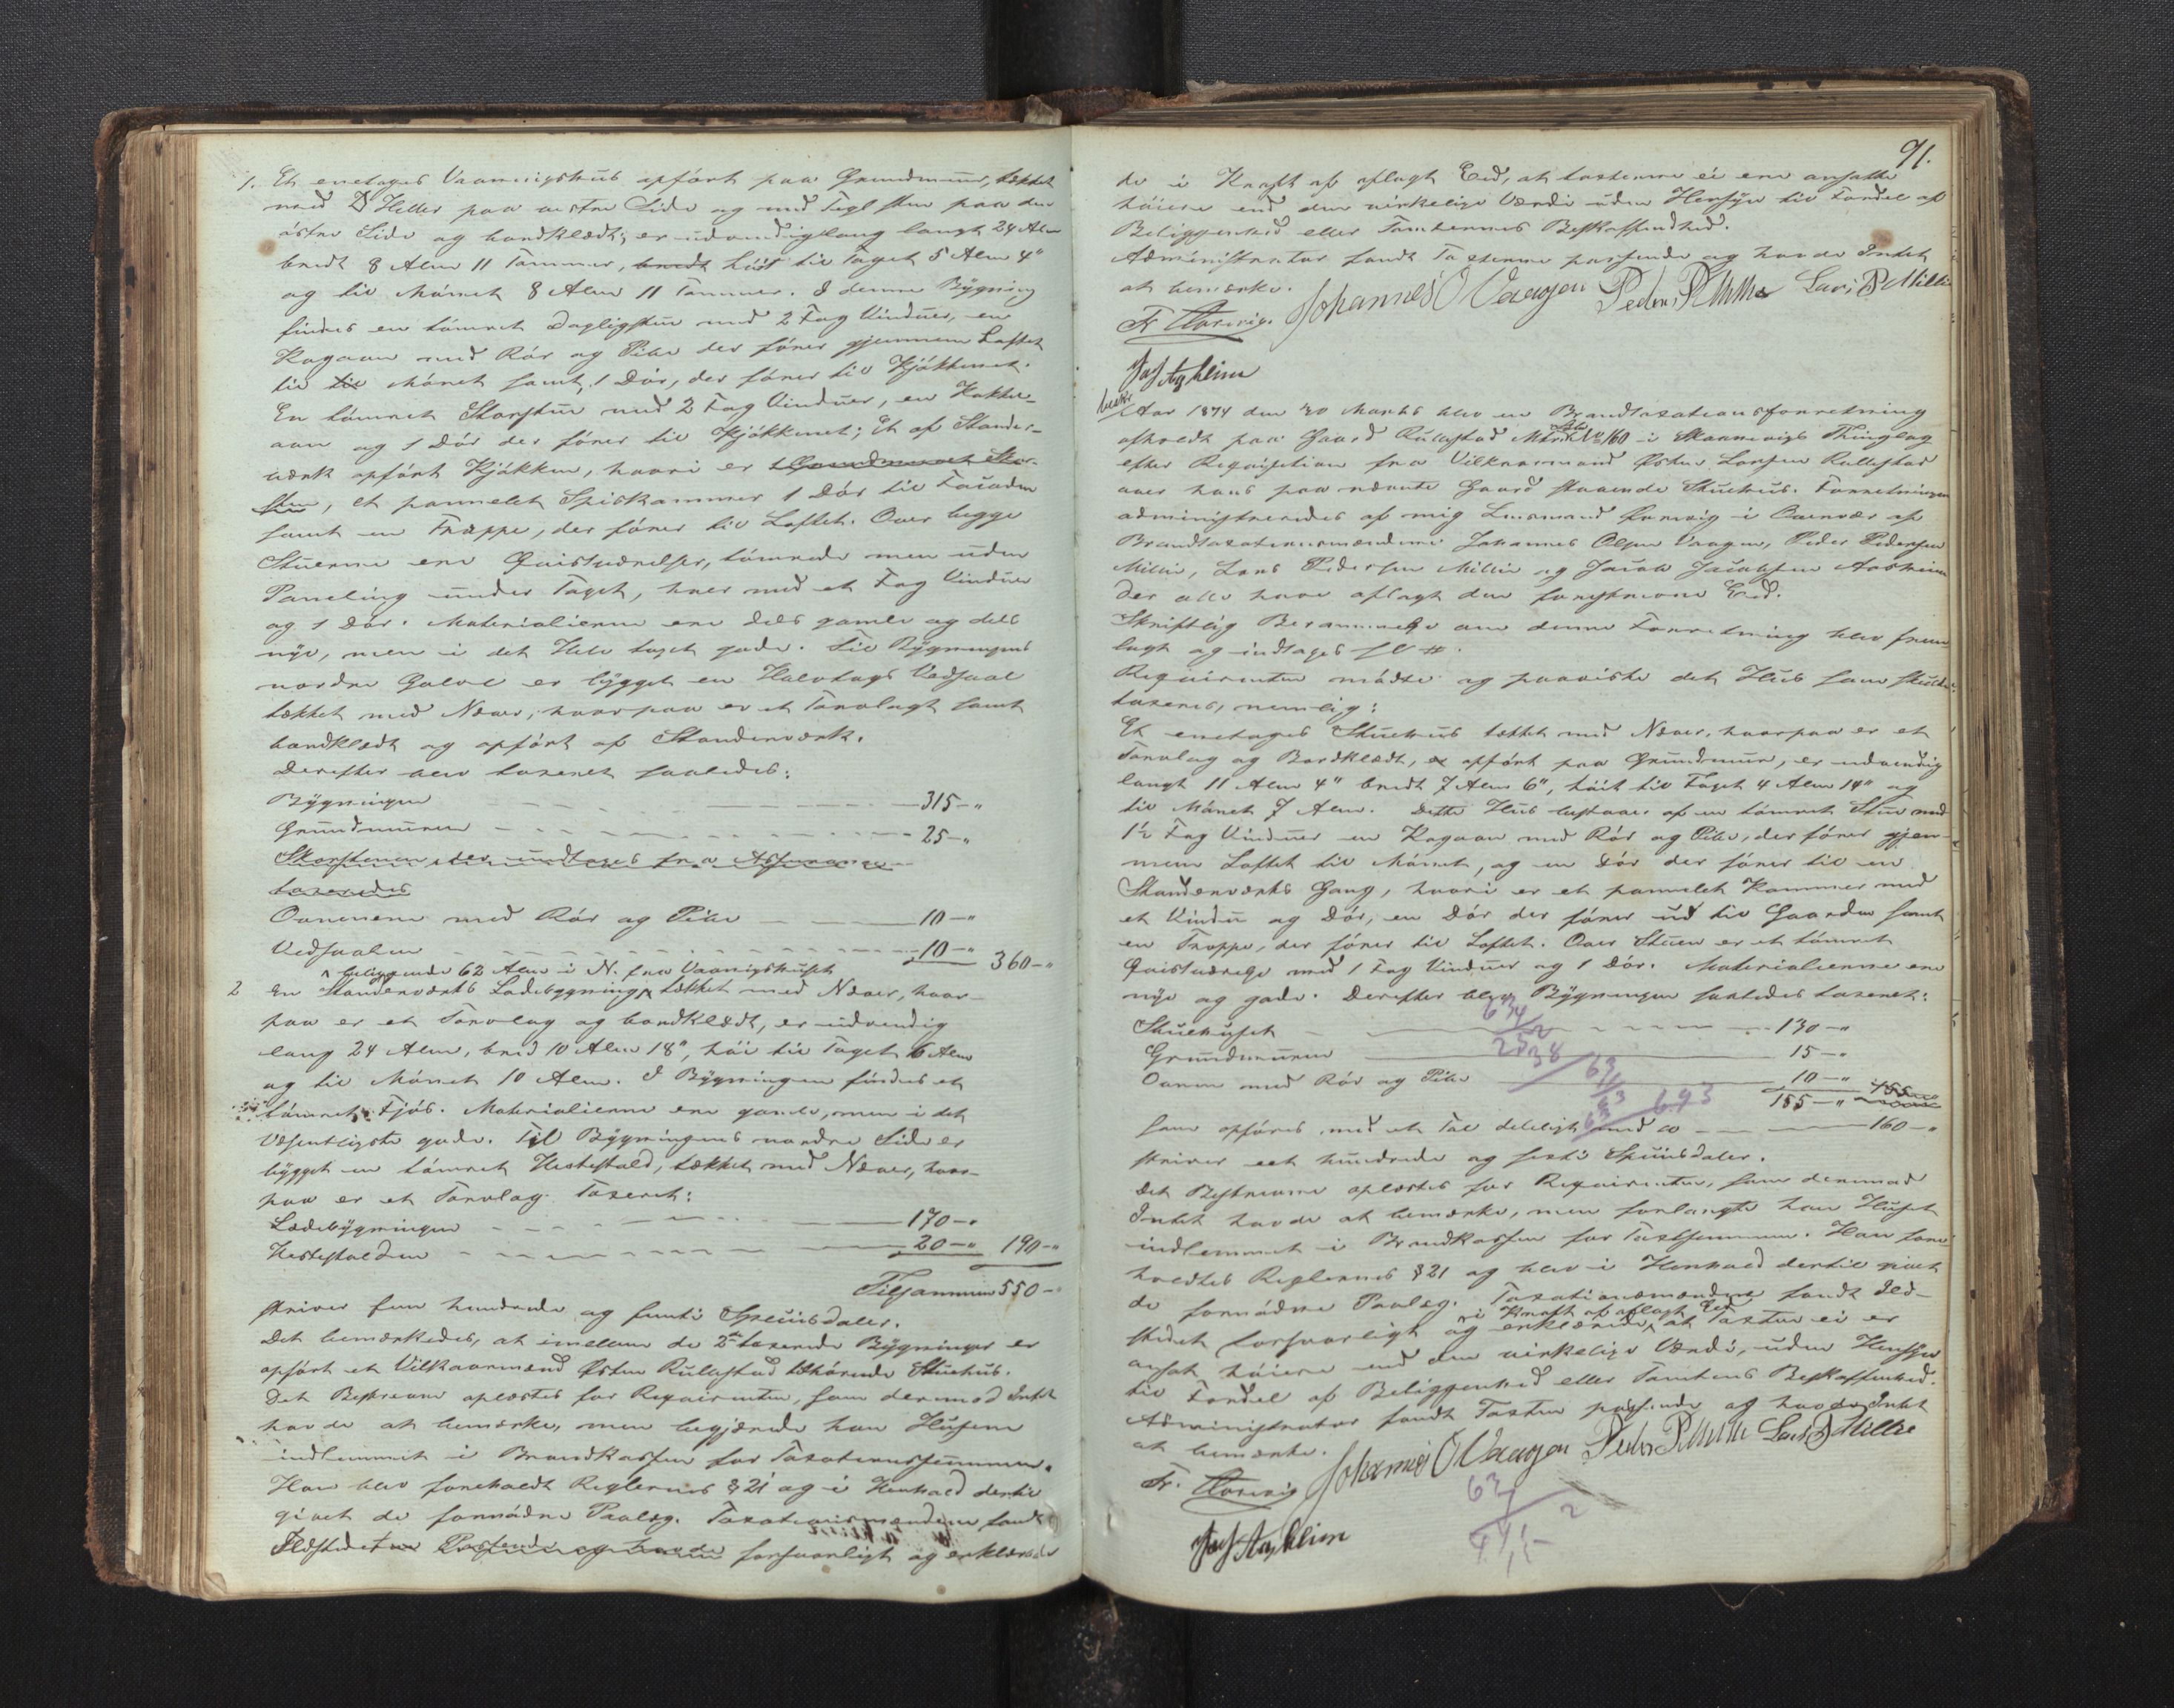 1. Et enetages Vaaningshus opført paa Grundmuur, tækket
med Heller paa vestre Side og med Teglsten paa den
østre Side og bordklædt; er udvendig lang langt 24 Alen
bredt 8 Alen 11 Tommer, bredt høit til Taget 5 Alen 4"
og til Mønet 8 Alen 11 Tommer. I denne Bygning
findes en tømret Dagligstue med 2 Fag Vinduer, en
Kogeovn med Rør og Pibe der fører gjennem Loftet
til til Mønet samt 1 Dør, der fører til Kjøkkenet.
En tømret Storstue med 2 Fag Vinduer, en Kakkel-
ovn og 1 Dør der fører til Kjøkkenet; Et af Stander-
værk opført Kjøkken, hvori er 1 Grundmuret Skor-
sten, et pannelet Spiskammer 1 Dør til Facaden
samt en Trappe, der fører til Loftet. Over begge
Stuerne ere Qvistværelser, tømrede men uden
Paneling under Taget, hver med et Fag Vinduer
og 1 Dør. Materialierne ere dels gamle og dels
nye, men i det Hele taget gode. Til Bygningens
nordre Gavl er bygget en Halvtags Vedsval
tækket med Næver, hvorpaa er et Torvlagt samt
bordklædt og opført af Standerværk.
Derefter blev taxeret saaledes:
Bygningen 315-"
Grundmuren 25-"
Skorstenen, der undtages fra Assurance
taxeredes
Ovnene med Rør og Pibe 10-"
Vedsvalen 10-" 360-"
beliggende 62 Alen i N. fra Vaaningshuset
2 En Standerværks Ladebygning, tækket med Næver, hvor-
paa er et Torvlag og bordklædt, er udvendig
lang 24 Alen, bred 10 Alen 18", høi til Taget 6 Alen
og til Mønet 10 Alen. I Bygningen findes et
tømret Fjøs. Materialierne ere gamle, men i det
Væsentligste gode. Til Bygningens nordre Side er
bygget en tømret Hestestald, tækket med Næver, hvor-
paa er et Torvlag. Taxeret:
Ladebygningen 170-"
Hestestalden 20-" 190-"
Tilsammen 550-
skriver fem hundrede og femti Speciesdaler.
Det bemærkedes, at imellem de 2de taxerede Bygninger er
opført et Vilkaarmand Østen Rullestad tilhørende Stuehus.
Det Beskrevne oplæstes for Reqvirenten, som dermod Intet
havde at bemærke, men begjærede han Husene
indlemmet i Brandkassen for Taxationssummen.
Han blev foreholdt Reglernes § 21 og i Henhold dertil
givet de fornødne Paalæg. Taxationsmændene fandt
Ildstedet forsvarligt og erklærede
91.
de i Kraft af aflagt Eed, at taxterne ei ere ansatte
høiere end den virkelige Værdi uden Hensyn til Fordel af
Beliggenhed eller Tomternes Beskaffenhed.
Administrator fandt Taxterne passende og havde Intet
at bemærke. Johannes O Vaagen Peder P Millie Lars P Millie
Fr.
Aar 1874 den 20 Marts blev en Brandtaxationsforretning
afholdt paa Gaard Rullestad Matr. No 160 i Skonevigs Thinglag
efter Reqvisition fra Vilkaarmand Østen Larsen Rullestad
over hans paa nævnte Gaard staaende Stuehus. Forretningen
administreredes af mig Lensmand i Overvær af
Brandtaxationsmændene Johannes Olsen Vaagen, Peder Pedersen
Millie, Lars Pedersen Millie og Jacob Jacobsen
der alle have aflagt den foreskrevne Eed.
Skriftlig Berammelse om denne Forretning blev frem-
lagt og indtages
Reqvirenten mødte og paaviste det Hus som skulde
taxeres, nemlig:
Et enetages Stuehus tækket med Næver, hvorpaa er et
Torvlag og Bordklædt, opført paa Grundmuur, er udvendig
langt 11 Alen 4" bredt 7 Alen 6", høit til Taget 4 Alen 14" og
til Mønet 7 Alen. Dette Hus bestaaer af en tømret Stue med
1½ Fag Vinduer en Kogeovn med Rør og Pibe, der fører gjen-
nem Loftet til Mønet, og en Dør der fører til en
Standerværks Gang, hvori er et pannelet Kammer med
et Vindu og Dør, en Dør der fører ud til Gaarden samt
en Trappe, der fører til Loftet. Over Stuen er et tømret
Qvistværelse med 1 Fag Vinduer og 1 Dør. Materialierne ere
nye og gode. Derefter blev Bygningen saaledes taxeret:
Stuehuset 130-"
Grundmuren 15-"
Ovnen med Rør og Pibe 10-"
155-" 155-"
som opføres med et Tal deleligt med 10 160-"
skriver eet hundrede og sexti Speciesdaler.
Det Beskrevne oplæstes for Reqvirenten, som dermod
Intet havde at bemærke, men forlangte han Huset
indlemmet i Brandkassen for Taxtsummen. Han fore-
holdtes Reglernes § 21 og blev i Henhold dertil givet
de fornødne Paalæg. Taxationsmændene fandt Ild-
i Kraft af aflagt Eed
stedet forsvarligt og erklærede, at Taxten ei er
ansat høiere end den virkelige Værdi, uden Hensyn
til Fordel af Beliggenhed eller Tomtens Beskaffenhed.
Administrator fandt Taxten passende og havde Intet
at bemærke. Johannes O Vaagen Peder P Millie Lars P Millie
Fr.